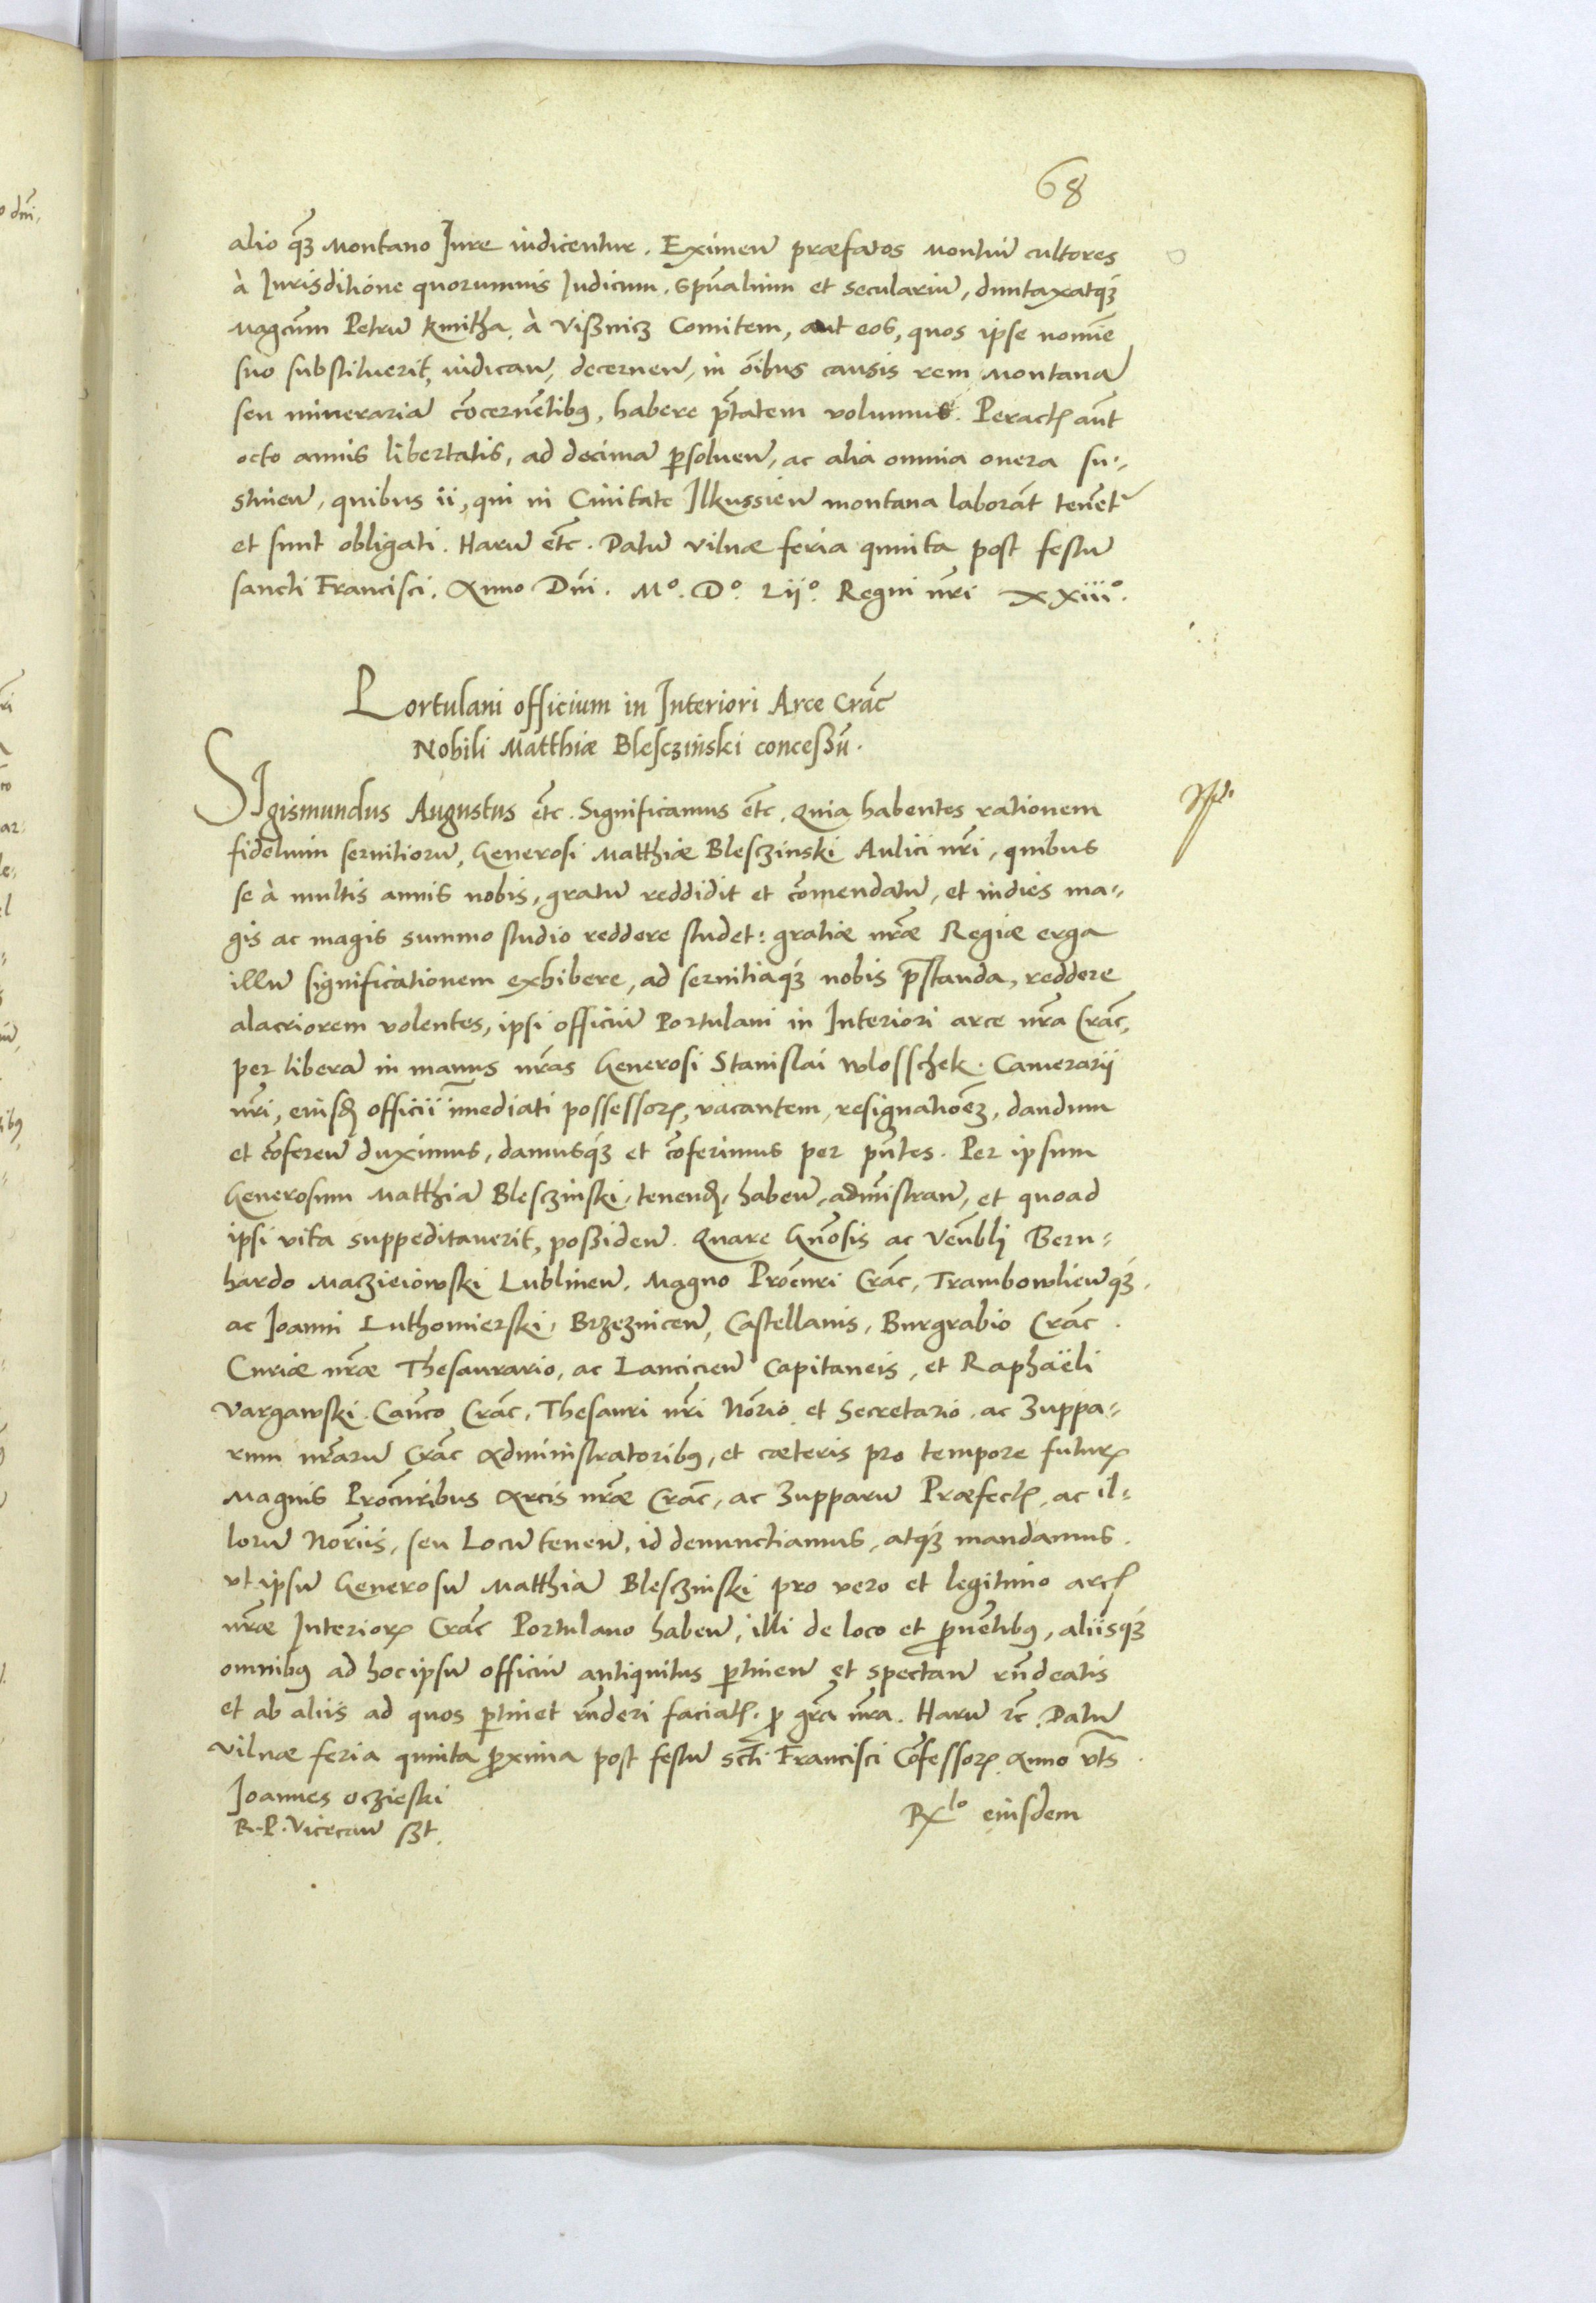 68
alio q̃ꝫ Montano Jure iudicentur. Eximeñ præfatos Montiũ cultores
à Jurisditióne quorumuis Judicum. Spũalium et seculariũ, duntaxatqꝫ
Magcũm Petrũ Kmitha à Vißnicz Comitem, aut eos, quos ipse nomĩe
suo substituerit, iudicañ, decerneñ, in oĩbus causis rem Montanã
seu minerariã cõcernẽtibꝯ, habere ptãtem volumus. Peractꝭ aũt
octo annis libertatis, ad decimã ꝑsolueñ, ac alia omnia onera su-
stineñ, quibus ii, qui in Ciuitate Ilkussieñ montana laborãt tenẽt᷑
et sunt obligati. Harũ etc̃. Datũ Vilnæ feria quinta post festũ
sancti Francisci. Anno Dñi. Mº. Dº. Lijº. Regni ñri XXiiiº.
Portulani officium in Interiori Arce Crãc
Nobili Matthiæ Blesczinski conceßũ.
SIgismundus Augustus etc̃. Significamus etc̃. Quia habentes rationem
fidelium seruitiorũ, Generosi Matthiæ Blesczinski Aulici ñri, quibus
se à multis annis nobis, gratũ reddidit et cõmendatũ, et indies ma-
gis ac magis summo studio reddere studet: gratiæ ñræ Regiæ erga
illũ significationem exhibere, ad seruitiaqꝫ nobis p̃standa, reddere
alacriorem volentes, ipsi officiũ Portulani in Interiori arce ñra Crãc,
per liberã in manus ñras Generosi Stanislai Wlosschek. Camerarij
ñri, eiusđ officii im̃ediati possessorꝭ, vacantem, resignatioẽꝫ, dandum
et cõfereñ duximus, damusqꝫ et cõferimus per pñtes. Per ipsum
Generosum Matthiã Blesczinski, tenenđ, habeñ, admĩstrañ, et quoad
ipsi vita suppeditauerit, poßideñ. Quare Gñosis ac Veñblꝭ Bern-
hardo Maczieiowski Lublineñ. Magno Procũri Crãc, Trambowlieñqꝫ.
ac Joanni Luthomierski, Brzezniceñ, Castellanis, Burgrabio Crãc.
Curiæ ñræ Thesaurario, ac Lancicieñ Capitaneis, et Raphaëli
Vargawski Cañco Crãc, Thesauri ñri Notrio et Secretario, ac Zuppa-
rum ñrarũ Crãc Administratoribꝯ, et cæteris pro tempore futurꝭ
Magnis Procũribus Arcis ñræ Crãc, ac Zupparũ Præfectꝭ, ac il-
lorũ Notriis, seu Locũteneñ, id denunctiamus, atqꝫ mandamus.
vt ipsũ Generosũ Matthiã Blesczinski pro vero et legitimo arcꝭ
ñræ Interiorꝭ Crãc Portulano habeñ, illi de loco et ꝓuẽtibꝯ, aliisqꝫ
omnibꝯ ad hoc ipsũ officiũ antiquitus ꝑtineñ et spectañ rñdeatis
et ab aliis ad quos ꝑtinet rñderi faciatꝭ. ꝓ grã ñra. Harũ ꝛc̃. Datũ
Vilnæ feria quinta ꝓxima post festũ sc̃ti Francisci Cõfessorꝭ Anno vt s̃.
Joannes Oczieski
R. P. Vicecañ ßt.
Rx̃ˡᵒ eiusdem